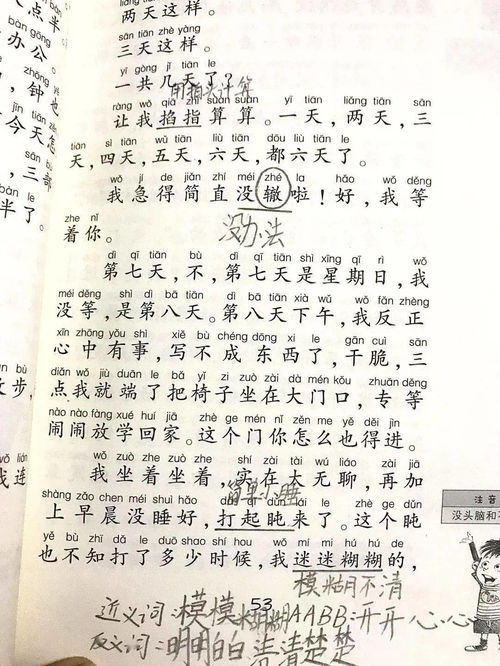 点半
bàn gōng
办公。
zhōng yě
，钟也
jīn tiān zěn
今天怎
，三部
bàn le
半了。
步，
我连
两天这样。
sān tiān zhè yàng
三天这样。
yī gòng jǐ tiān le
一共几天了？
用指头计算
ràng wǒ qiā zhǐ suàn suàn yī tiān liǎng tiān sān
让我掐指算算。一天，两天，三
tiān sì tiān wǔ tiān liù tiān dōu liù tiān le
天，四天，五天，六天，都六天了。
wǒ jí de jiǎn zhí méi zhé la hǎo wǒ děng
我急得简直没辙啦！好，我等
zhe nǐ
着你。
没办法
dì qī tiān bù dì qī tiān shì xīng qī rì wǒ
第七天，不，第七天是星期日，我
méi děng shì dì bā tiān dì bā tiān xià wǔ wǒ fǎn zhèng
没等，是第八天。第八天下午，我反正
xīn zhōng yǒu shì xiě bù chéng dōng xi le gān cuì sān
心中有事，写不成东西了，干脆，三
diǎn wǒ jiù duān le bǎ yǐ zi zuò zài dà mén kǒu zhuān děng
点我就端了把椅子坐在大门口，专等
nào nào fàng xué huí jiā zhè ge mén nǐ zěn me yě děi jìn
闹闹放学回家。这个门你怎么也得进。
wǒ zuò zhe zuò zhe shí zài tài wú liáo zài jiā
我坐着坐着，实在太无聊，再加
shàng zǎo chen méi shuì hǎo dǎ qǐ dǔn lái le zhè ge dǔn
上早晨没睡好，打起盹来了。这个盹
yě bù zhī dǎ le duō shao shí hou wǒ mí mí hú hú de
也不知打了多少时候，我迷迷糊糊的，
模糊不清
53
近义词：模模糊糊AABB：开开心心
反义词：明明白白 清清楚楚
注音
没头脑和不